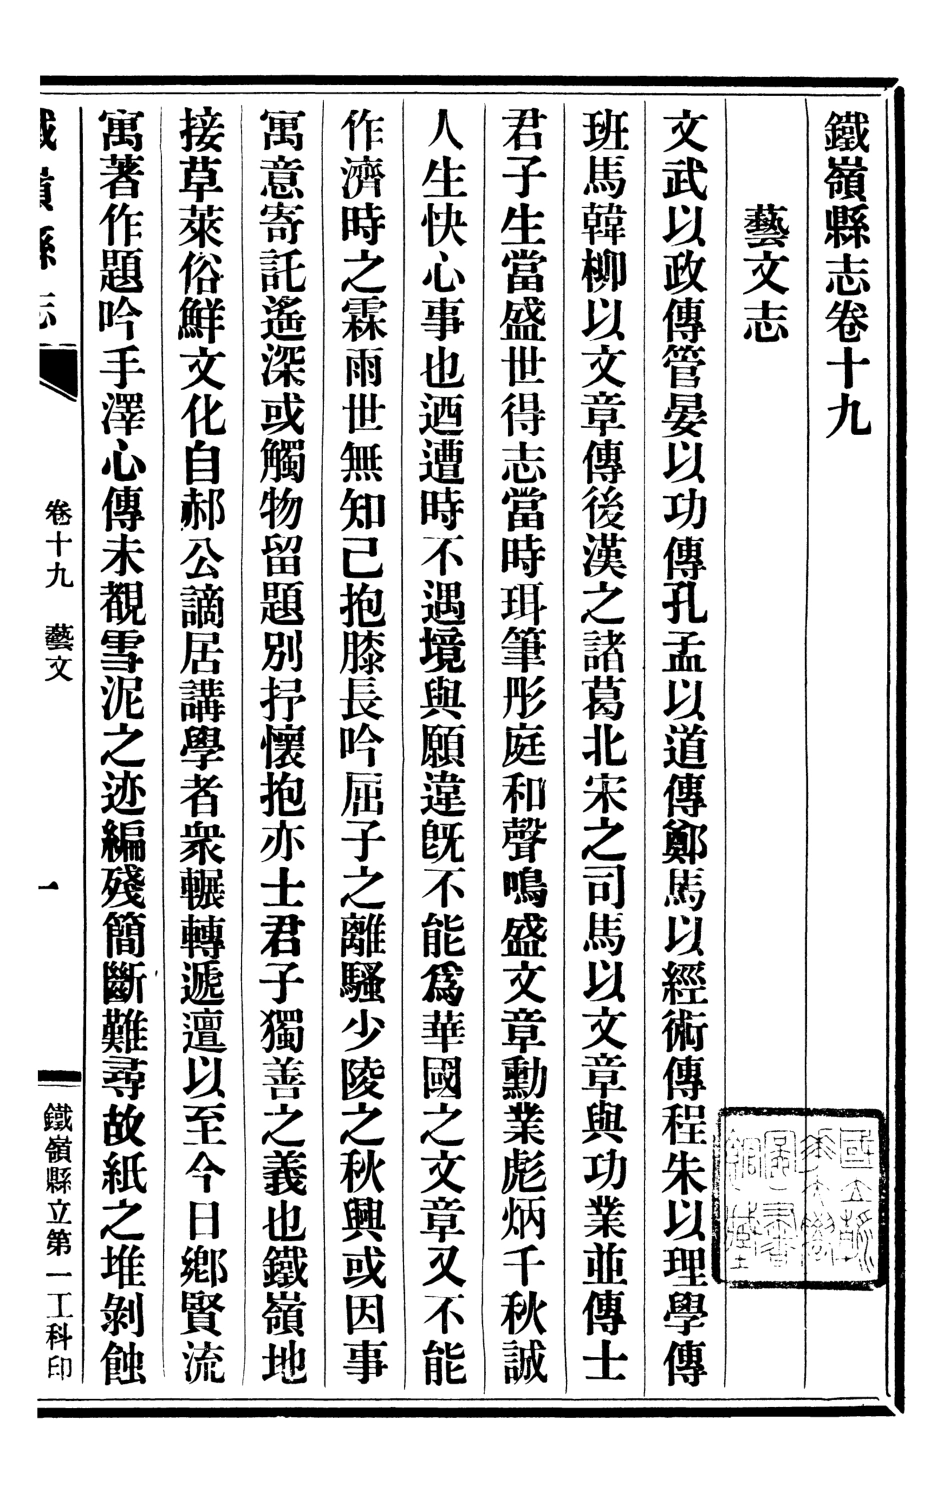 鐵嶺縣志卷十九
藝文志
文武以政傳管晏以功傳孔孟以道傳鄭馬以經術傳程朱以理學傳
班馬韓柳以文章傳後漢之諸葛北宋之司馬以文章與功業並傳士
君子生當盛世得志當時珥筆彤庭和聲鳴盛文章勳業彪炳千秋誠
人生快心事也迺遭時不遇境與願違旣不能爲華國之文章又不能
作濟時之霖雨世無知己抱膝長吟屈子之離騷少陵之秋興或因事
寓意寄託遙深或觸物留題別抒懷抱亦士君子獨善之義也鐵嶺地
接草萊俗鮮文化自郝公謫居講學者衆輾轉遞邅以至今日鄉賢流
寓著作題吟手澤心傳未覩雪泥之迹編殘簡斷難尋故紙之堆剝蝕
鐵嶺縣志
卷十九 藝文
一
鐵嶺縣立第一工科印